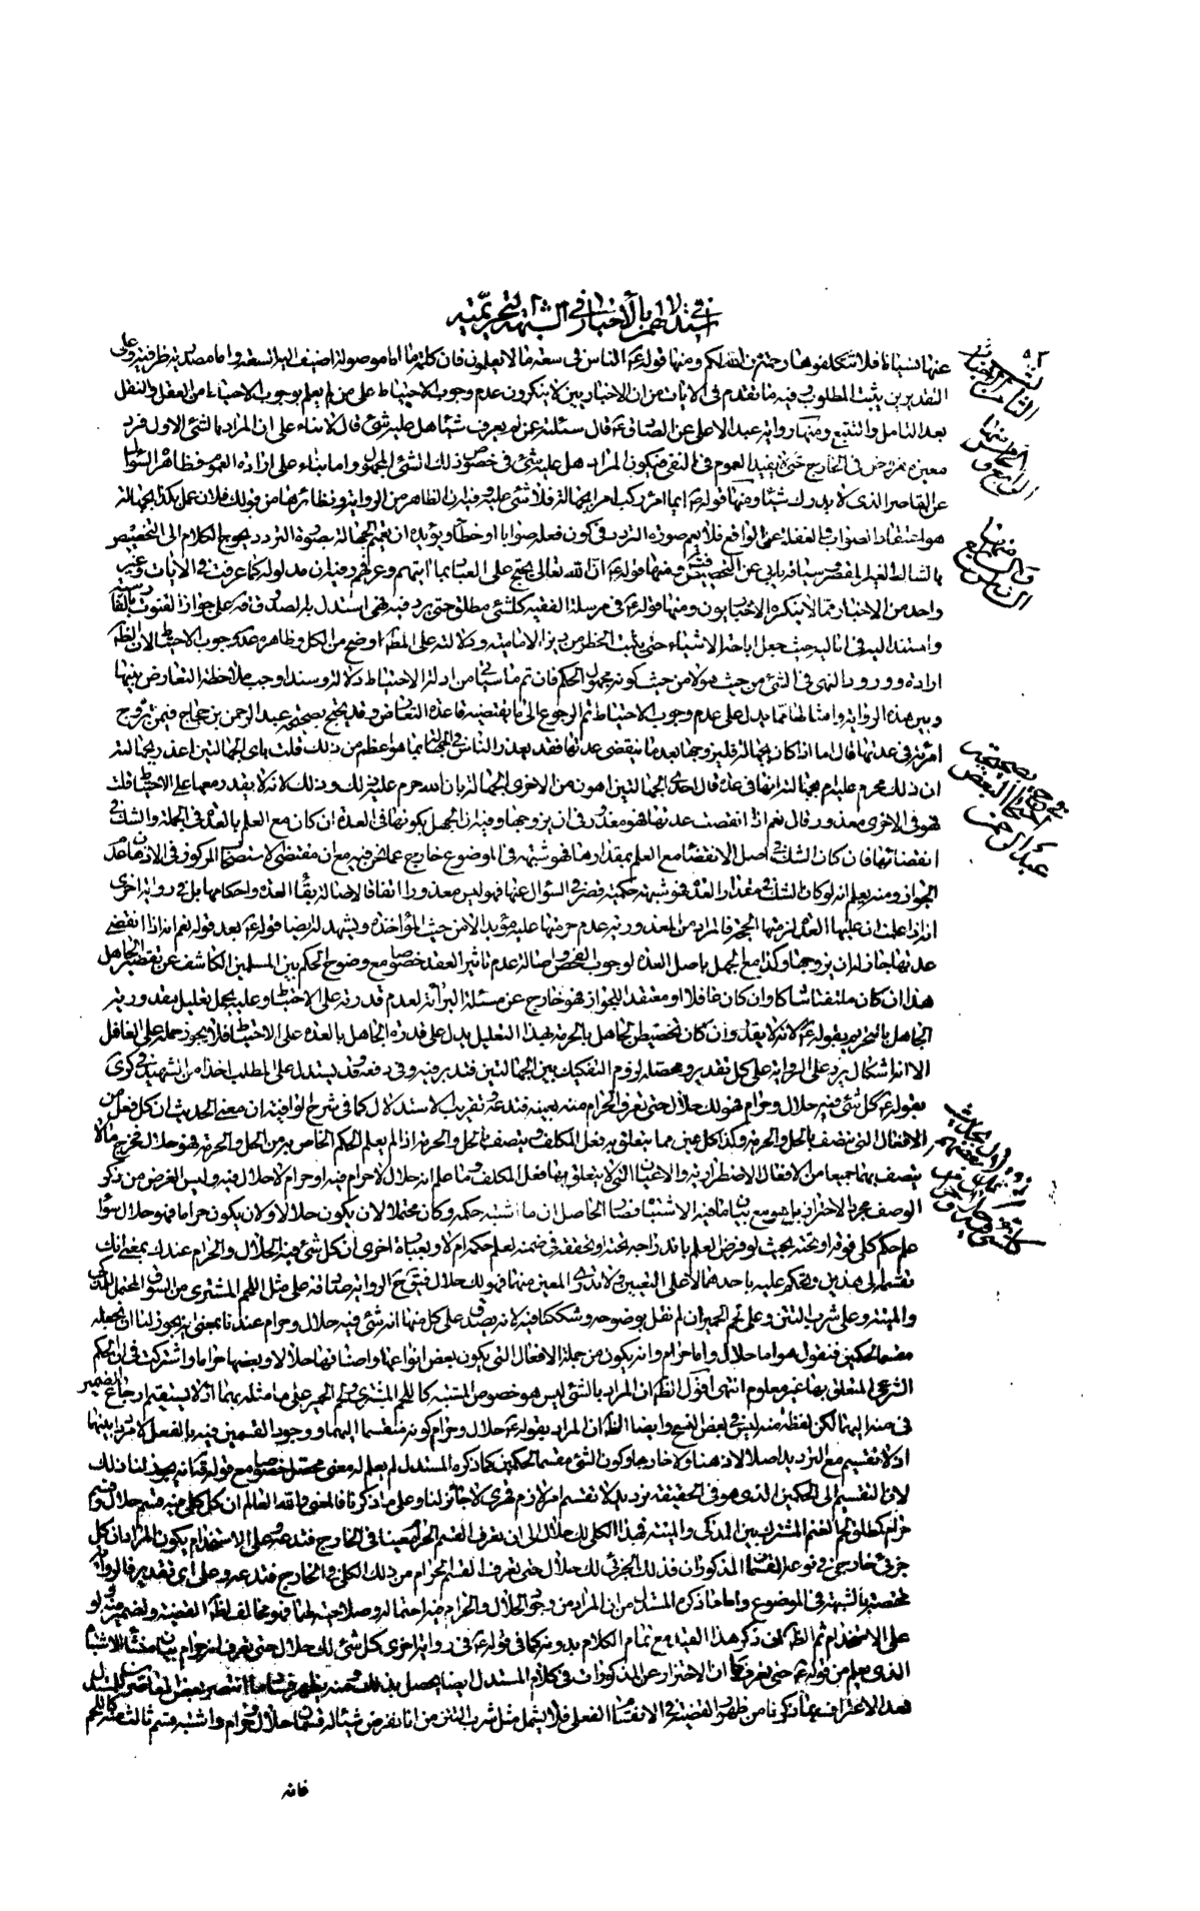 في استدلالهم بالأخبار في الشبهة التحريمية
عنها نسيانا فلا تتكلفوها رحمة من الله لكم ومنها قوله ع الناس في سعة ما لا يعلمون فان كلمة ما اما موصولة اضيف اليه السعة واما مصدرية ظرفية وعلى
التقديرين يثبت المطلوب وفيه ما تقدم في الايات من ان الاخباريين لا ينكرون عدم وجوب الاحتياط على من لم يعلم بوجوب الاحتياط من العقل والنقل
بعد التامل والتتبع ومنها رواية عبد الاعلى عن الصادق ع قال سئلته عن من لم يعرف شيئا هل عليه شئ قال لا بناء على ان المراد بالشئ الاول فرد
معين مفروض في الخارج حتى لا يفيد العموم في النفي فيكون المراد هل عليه شئ في خصوص ذلك الشئ المجهول واما بناء على ارادة العموم فظاهره السؤال
عن القاصر الذي لا يدرك شيئا ومنها قوله ع ايما امرء ركب امرا بجهالة فلا شئ عليه وفيه ان الظاهر من الرواية ونظائرها من قولك فلان عمل بكذا بجهالة
هو اعتقاد الصواب او الغفلة عن الواقع فلا يعم صورة التردد في كون فعله صوابا او خطأ ويؤيده ان تعميم الجهالة بصورة التردد يحوج الكلام الى التخصيص
بالشاك الغير المقصر وسياقه يابى عن التخصيص ومنها قوله ع ان الله تعالى يحتج على العباد بما اتيهم وعرفهم وفيه ان مدلوله كما عرفت في الايات وغير
واحد من الاخبار مما لا ينكره الاخباريون ومنها قوله ع في مرسلة الفقيه كل شئ مطلق حتى يرد فيه نهى استدل به الصدوق ره على جواز القنوت بالفارسية
واستند اليه في اماليه حيث جعل اباحة الاشياء حتى يثبت الحظر من دين الامامية ودلالته على المطلب اوضح من الكل وظاهره عدم وجوب الاحتياط لان الظاهر
ارادة ورود النهى في الشئ من حيث هو لا من حيث كونه مجهول الحكم فان تم ما سياتي من ادلة الاحتياط دلالة وسندا وجب ملاحظة التعارض بينها
وبين هذه الرواية وامثالها مما يدل على عدم وجوب الاحتياط ثم الرجوع الى ما يقتضيه قاعدة التعارض وقد يحتج بصحيحة عبد الرحمن بن حجاج فيمن تزوج
امرئة في عدتها قال اما اذا كان بجهالة فليزوجها بعد ما ينقضى عدتها فقد يعذر الناس في الجهالة بما هو اعظم من ذلك قلت باى الجهالتين اعذر بجهالته
ان ذلك محرم عليه ام بجهالته انها في عدة قال احدى الجهالتين اهون من الاخرى الجهالة بان الله حرم عليه ذلك وذلك لانه لا يقدر معها على الاحتياط قلت
فهو في الاخرى معذور قال نعم اذا انقضت عدتها فهو معذور في ان يزوجها وفيه ان الجهل بكونها في العدة ان كان مع العلم بالعدة في الجملة والشك في
انقضائها فان كان الشك في اصل الانقضاء مع العلم بمقدارها فهو شبهة في الموضوع خارج عما نحن فيه مع ان مقتضى الاستصحاب المركوز في الاذهان عدم
الجواز ومنه يعلم انه لو كان الشك في مقدار العدة فهو شبهة حكمية قصر في السؤال عنها فهو ليس معذورا اتفاقا لاصالة بقاء العدة واحكامها بل في رواية اخرى
انه اذا علمت ان عليها العدة لزمتها الحجة فالمراد من المعذورية عدم حرمتها عليه مؤبدا لا من حيث المؤاخذة ويشهد له ايضا قوله ع بعد قوله نعم انه اذا انقضت
عدتها جاز له ان يزوجها وكذا مع الجهل باصل العدة لوجوب الفحص واصالة عدم تاثير العقد خصوصا مع وضوح الحكم بين المسلمين الكاشف عن تقصير الجاهل
هذا ان كان ملتفتا شاكا وان كان غافلا او معتقدا للجواز فهو خارج عن مسئلة البرائة لعدم قدرته على الاحتياط وعليه يحمل تعليل معذورية
الجاهل بالتحريم بقوله ع لانه لا يقدر وان كان تخصيص الجاهل بالحرمة بهذا التعليل يدل على قدرة الجاهل بالعدة على الاحتياط فلا يجوز حمله على الغافل
الا انه اشكال يرد على الرواية على كل تقدير ومحصله لزوم التفكيك بين الجهالتين فتدبر فيه وفي دفعه وقد يستدل على المطلب اخذا من الشهيد في كرى
بقوله ع كل شئ فيه حلال وحرام فهو لك حلال حتى تعرف الحرام منه بعينه فتدعه وتقريب الاستدلال كما في شرح الوافية ان معنى الحديث ان كل فعل من
الافعال التي تتصف بالحل والحرمة وكذا كل عين مما يتعلق به فعل المكلف ويتصف بالحل والحرمة اذا لم يعلم الحكم الخاص به من الحل والحرمة فهو حلال فخرج ما لا
يتصف بهما جميعا من الافعال الاضطرارية والاعيان التي لا يتعلق بها فعل المكلف وما علم انه حلال لا حرام فيه او حرام لا حلال فيه وليس الغرض من ذكر
الوصف مجرد الاحتراز بل هو مع بيان ما فيه الاشتباه فصار الحاصل ان ما اشتبه حكمه وكان محتملا لان يكون حلالا ولان يكون حراما فهو حلال سواء
علم حكم كلى فوقه او تحته بحيث لو فرض العلم باندراجه تحته او تحققه في ضمنه لعلم حكمه ام لا وبعبارة اخرى ان كل شئ فيه الحلال والحرام عندك بمعنى انك
تقسمه الى هذين وتحكم عليه باحدهما لا على التعيين ولا تدرى المعين منهما فهو لك حلال فيقال ح الرواية صادقة على مثل اللحم المشترى من السوق المحتمل للمذكى
والميتة وعلى شرب التتن وعلى لحم الحمير ان لم نقل بوضوحه وشككنا فيه لانه يصدق على كل منها انه شئ فيه حلال وحرام عندنا بمعنى انه يجوز لنا ان نجعله
مقسما لحكمين فنقول هو اما حلال واما حرام وانه يكون من جملة الافعال التي يكون بعض انواعها واصنافها حلالا وبعضها حراما واشتركت في ان الحكم
الشرعى المتعلق بها غير معلوم انتهى اقول الظاهر ان المراد بالشئ ليس هو خصوص المشتبه كاللحم المشترى ولحم الحمير على ما مثله بهما اذ لا يستقيم ارجاع الضمير
في منه اليهما لكن لفظة منه ليس في بعض النسخ وايضا الظاهر ان المراد بقوله ع حلال وحرام كونه منقسما اليهما ووجود القسمين فيه بالفعل لا مرددا بينهما
اذ لا تقسيم مع الترديد اصلا لا ذهنا ولا خارجا وكون الشئ مقسما لحكمين كما ذكره المستدل لم يعلم له معنى محصل خصوصا مع قوله قده انه يجوز لنا ذلك
لان التقسيم الى الحكمين الذي هو في الحقيقة ترديد لا تقسيم امر لازم قهرى لا جائز لنا وعلى ما ذكرنا فالمعنى والله العالم ان كل كلى فيه قسم حلال وقسم
حرام كمطلق لحم الغنم المشترك بين المذكى والميتة فهذا الكلى لك حلال الى ان تعرف القسم الحرام معينا في الخارج فتدعه وعلى الاستخدام يكون المراد ان كل
جزئى خارجى في نوعه القسمان المذكوران فذلك الجزئى لك حلال حتى تعرف القسم الحرام من ذلك الكلى في الخارج فتدعه وعلى اى تقدير فالرواية
مختصة بالشبهة في الموضوع واما ما ذكره المستدل من ان المراد من وجود الحلال والحرام فيه احتماله وصلاحيته لهما فهو مخالف لظاهر القضية ولضمير منه ولو
على الاستخدام ثم الظاهر ان ذكر هذا القيد مع تمام الكلام بدونه كما في قوله ع في رواية اخرى كل شئ لك حلال حتى تعرف انه حرام بيان منشأ الاشتباه
الذي يعلم من قوله ع حتى تعرف كما ان الاحتراز عن المذكورات في كلام المستدل ايضا يحصل بذلك ومنه يظهر فساد ما انتصر بعض المعاصرين للمستدل
بعد الاعتراف بما ذكرنا من ظهور القضية في الانقسام الفعلى فلا يشمل مثل شرب التتن من انا نفرض شيئا له قسمان حلال وحرام واشتبه قسم ثالث منه كاللحم
فانه